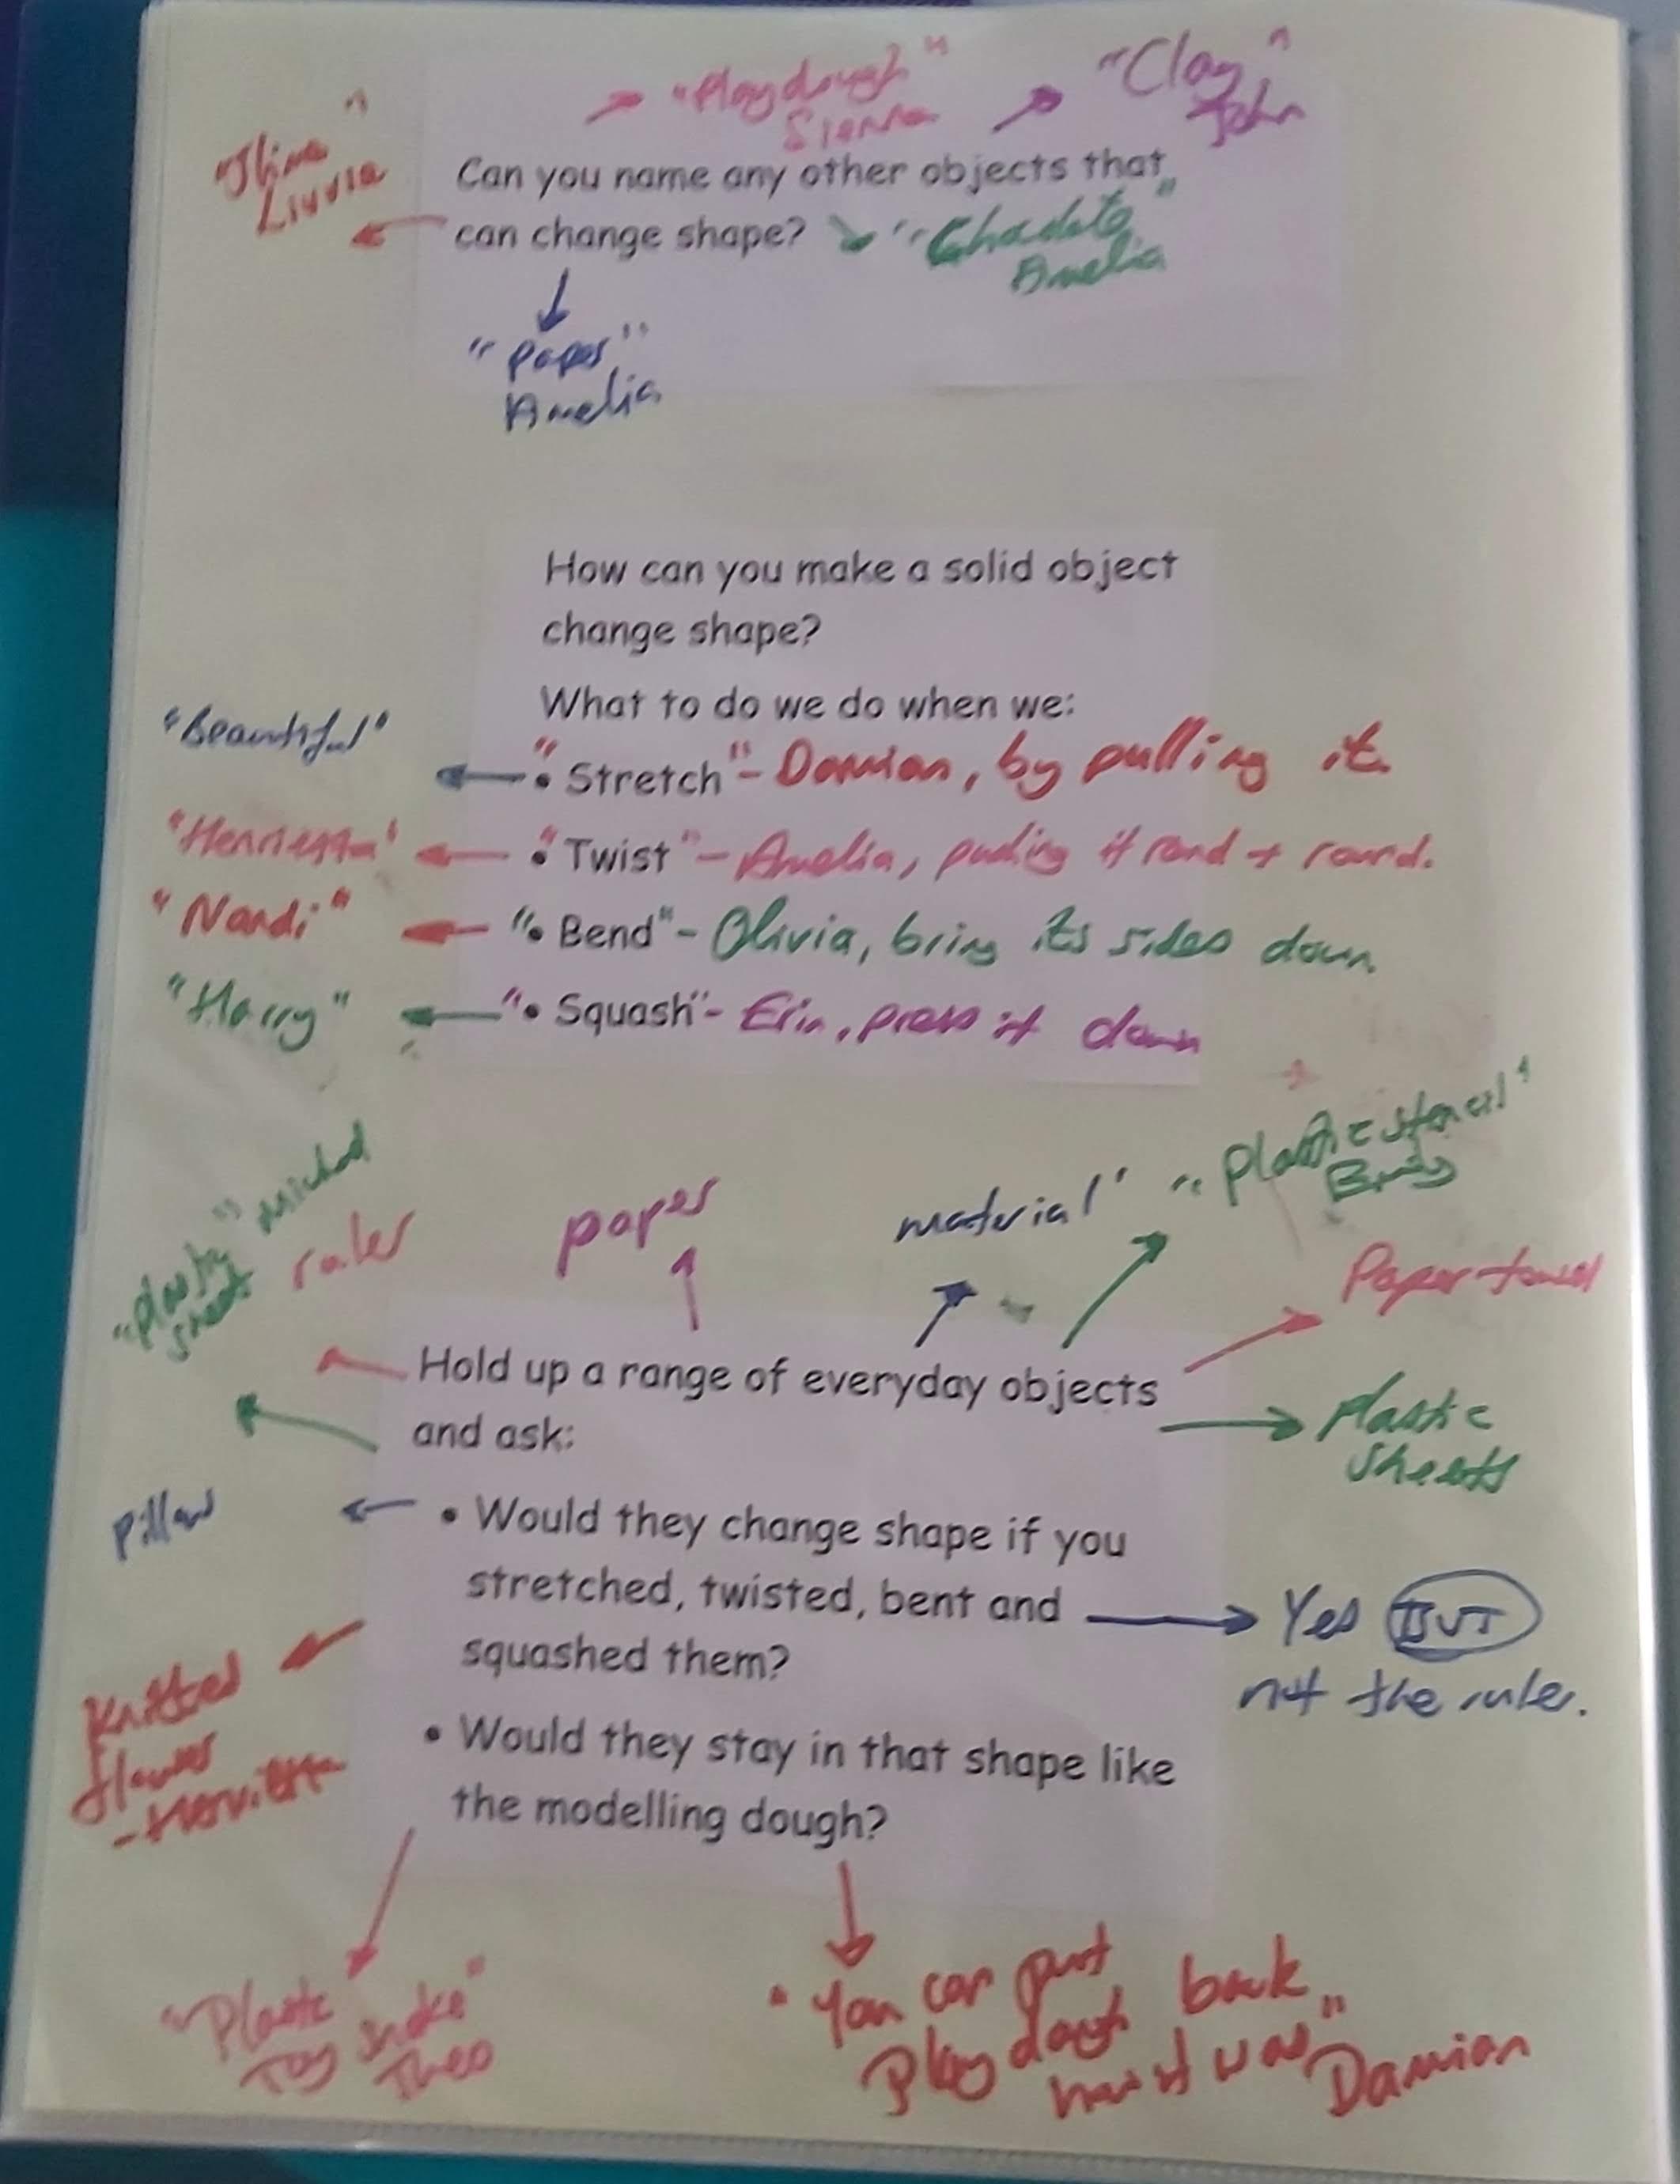 "Playdough"
Sienna
"Clay"
John
"Slime"
Livvia
Can you name any other objects that
can change shape?
Amelia
"Paper"
Amelia
How can you make a solid object
change shape?
What to do we do when we:
"Beautiful"
"• Stretch" - Damian, by pulling it.
"Henrietta" "• Twist" - Amelia, pulling it rond + round.
"Nandi" "• Bend" - Olivia, bring its sides down.
"Harry" "• Squash" - Erin, press it down
"Plastic stencil"
material'
"Plasty" Michael
sheets
ruler
paper
Paper towel
Hold up a range of everyday objects
and ask:
Plastic
sheets
pillow
• Would they change shape if you
stretched, twisted, bent and
squashed them?
Yes BUT
not the ruler.
Knitted
flower
- Henrietta
• Would they stay in that shape like
the modelling dough?
"Plastic
Toy snake"
Theo
"You can put
Play dough back
how it was"
Damian